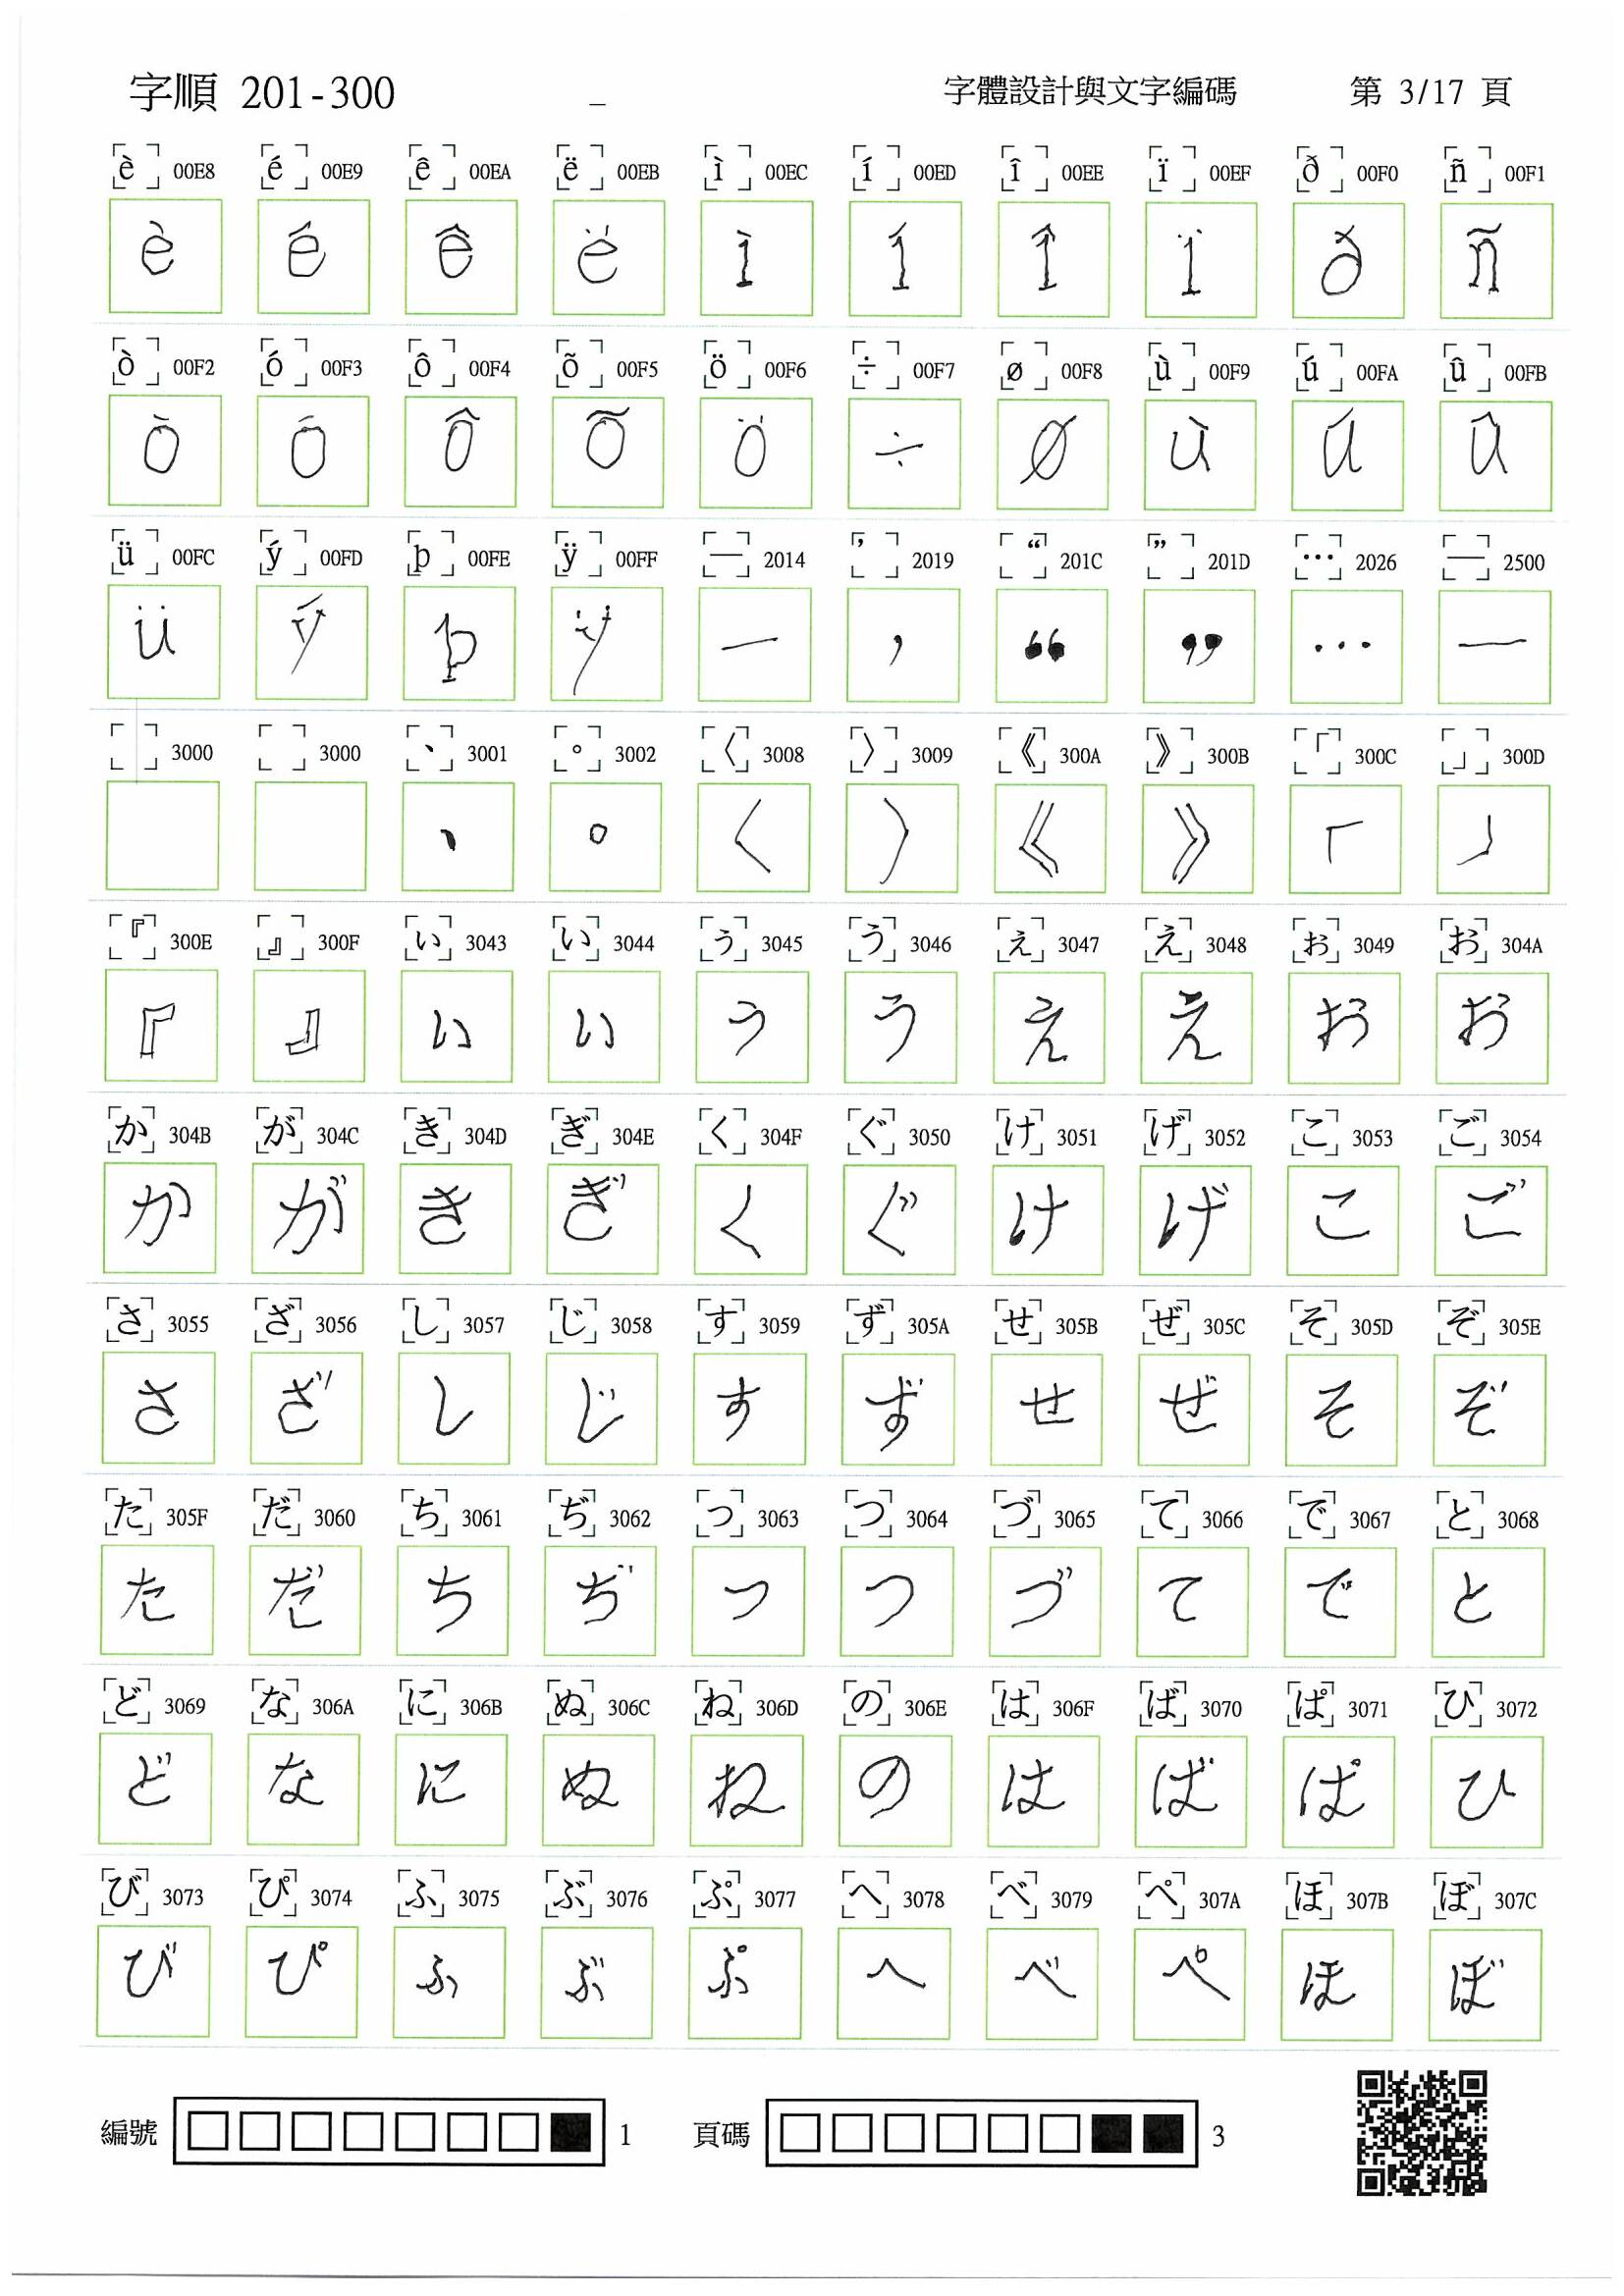 字順 201-300 _ 字體設計與文字編碼 第 3/17 頁
è 00E8 é 00E9 ê 00EA ë 00EB ì 00EC í 00ED î 00EE ï 00EF ð 00F0 ñ 00F1
è é ê ë ì í î ï ð ñ
ò 00F2 ó 00F3 ô 00F4 õ 00F5 ö 00F6 ÷ 00F7 ø 00F8 ù 00F9 ú 00FA û 00FB
ò ó ô õ ö ÷ ø ù ú û
ü 00FC ý 00FD þ 00FE ÿ 00FF — 2014 ’ 2019 “ 201C ” 201D … 2026 ─ 2500
ü ý þ ÿ — ’ “ ” … ─
3000 3000 、 3001 。 3002 〈 3008 〉 3009 《 300A 》 300B 「 300C 」 300D
、 。 〈 〉 《 》 「 」
『 300E 』 300F ぃ 3043 い 3044 ぅ 3045 う 3046 ぇ 3047 え 3048 ぉ 3049 お 304A
『 』 ぃ い ぅ う ぇ え ぉ お
か 304B が 304C き 304D ぎ 304E く 304F ぐ 3050 け 3051 げ 3052 こ 3053 ご 3054
か が き ぎ く ぐ け げ こ ご
さ 3055 ざ 3056 し 3057 じ 3058 す 3059 ず 305A せ 305B ぜ 305C そ 305D ぞ 305E
さ ざ し じ す ず せ ぜ そ ぞ
た 305F だ 3060 ち 3061 ぢ 3062 っ 3063 つ 3064 づ 3065 て 3066 で 3067 と 3068
た だ ち ぢ っ つ づ て で と
ど 3069 な 306A に 306B ぬ 306C ね 306D の 306E は 306F ば 3070 ぱ 3071 ひ 3072
ど な に ぬ ね の は ば ぱ ひ
び 3073 ぴ 3074 ふ 3075 ぶ 3076 ぷ 3077 へ 3078 べ 3079 ぺ 307A ほ 307B ぼ 307C
び ぴ ふ ぶ ぷ へ べ ぺ ほ ぼ
編號 1 頁碼 3